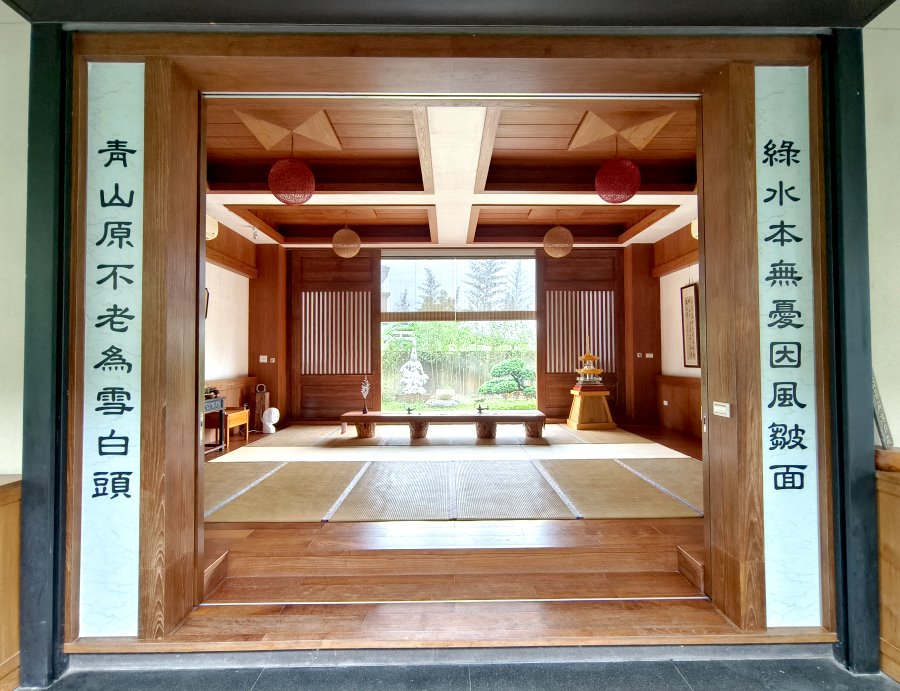 綠水本無憂因風皺面
青山原不老為雪白頭